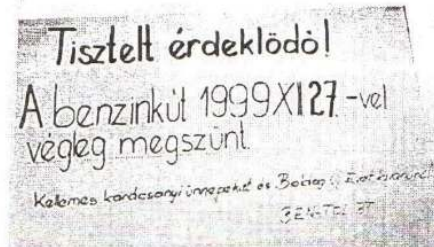 Tisztelt érdeklődő!
A benzinkút 1999 XI 27.-vel
végleg megszűnt.
Kellemes karácsonyi ünnepeket és Boldog Új Évet kívánunk!